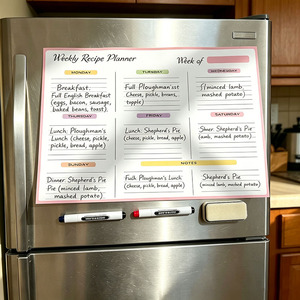 Weekly Recipe Planner
Week of
MONDAY
Breakfast:
Full English Breakfast
(eggs, bacon, sausage,
baked beans, toast).
TUESDAY
Full Ploughman'sst
(cheese, pickle, beans,
WEDNESDAY
mashed potato)
THURSDAY
Lunch: Ploughman's
Lunch (cheese, pickle,
pickle, bread, apple)
FRIDAY
Lunch: Shepherd's Pie
(cheese, pickle,
pickle, bread, apple)
SATURDAY
Shepherd's Pie
lamb, mashed potato)
SUNDAY
Dinner Shepherd's Pie
Pie (minced lamb,
mashed potato)
NOTES
Lunch
(cheese, pickle, bread, apple)
Shepherd's Pie
(minced lamb, mashed potato)